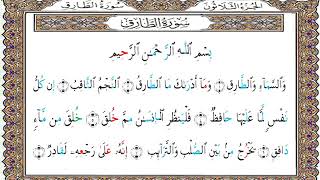 الجزء الثلاثون سورة الطارق
سُورَةُ الطَّارِقِ
بِسْمِ اللَّهِ الرَّحْمَٰنِ الرَّحِيمِ
وَالسَّمَاءِ وَالطَّارِقِ ۝ وَمَا أَدْرَاكَ مَا الطَّارِقُ ۝ النَّجْمُ الثَّاقِبُ ۝ إِن كُلُّ
نَفْسٍ لَّمَّا عَلَيْهَا حَافِظٌ ۝ فَلْيَنظُرِ الْإِنسَٰنُ مِمَّ خُلِقَ ۝ خُلِقَ مِن مَّاءٍ
دَافِقٍ ۝ يَخْرُجُ مِنْ بَيْنِ الصُّلْبِ وَالتَّرَائِبِ ۝ إِنَّهُ عَلَىٰ رَجْعِهِ لَقَادِرٌ ۝